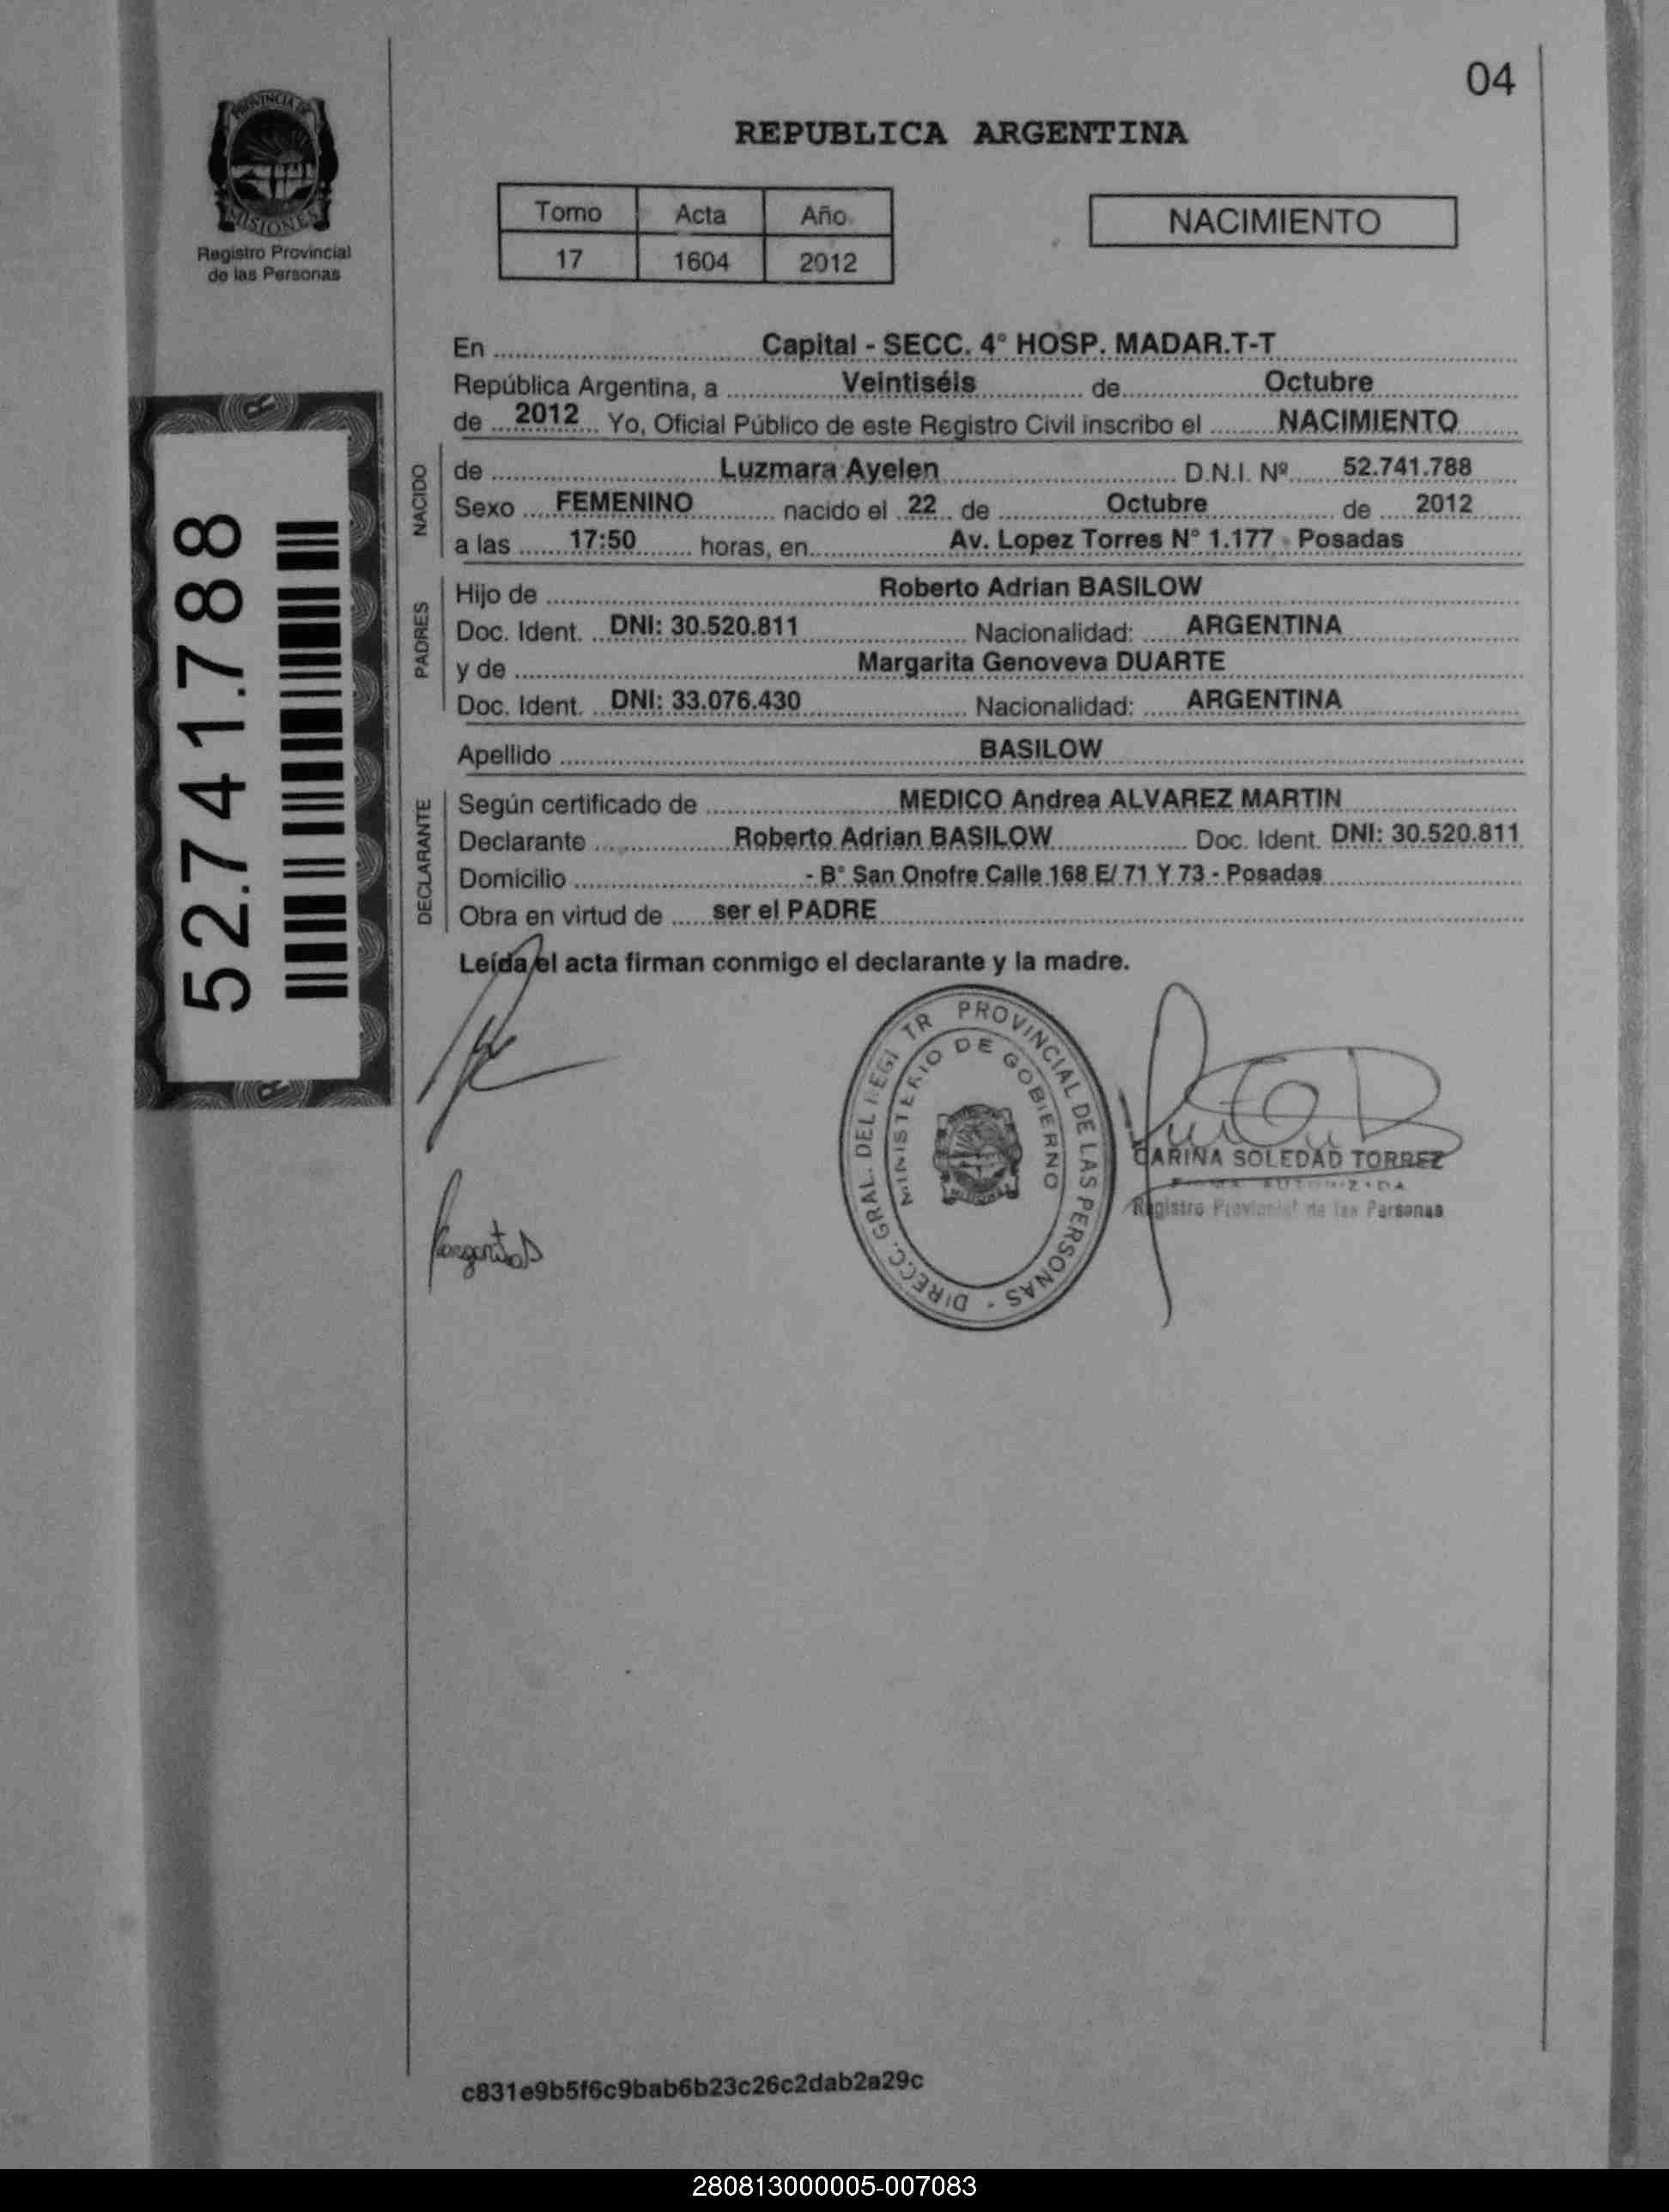 04
PROVINCIA DE
MISIONES
Registro Provincial
de las Personas
REPUBLICA ARGENTINA
Tomo Acta Año
17 1604 2012
NACIMIENTO
En Capital - SECC. 4° HOSP. MADAR.T-T
República Argentina, a Veintiséis de Octubre
de 2012 Yo, Oficial Público de este Registro Civil inscribo el NACIMIENTO
NACIDO
de Luzmara Ayelen D.N.I. Nº 52.741.788
Sexo FEMENINO nacido el 22 de Octubre de 2012
a las 17:50 horas, en Av. Lopez Torres N° 1.177 - Posadas
PADRES
Hijo de Roberto Adrian BASILOW
Doc. Ident. DNI: 30.520.811 Nacionalidad: ARGENTINA
y de Margarita Genoveva DUARTE
Doc. Ident. DNI: 33.076.430 Nacionalidad: ARGENTINA
Apellido BASILOW
DECLARANTE
Según certificado de MEDICO Andrea ALVAREZ MARTIN
Declarante Roberto Adrian BASILOW Doc. Ident. DNI: 30.520.811
Domicilio - B° San Onofre Calle 168 E/ 71 Y 73 - Posadas
Obra en virtud de ser el PADRE
Leída el acta firman conmigo el declarante y la madre.
52.741.788
DIRECC. GRAL. DEL REGI TR PROVINCIAL DE LAS PERSONAS -
MINISTERIO DE GOBIERNO
CARINA SOLEDAD TORREZ
Registro Provincial de las Personas
c831e9b5f6c9bab6b23c26c2dab2a29c
280813000005-007083